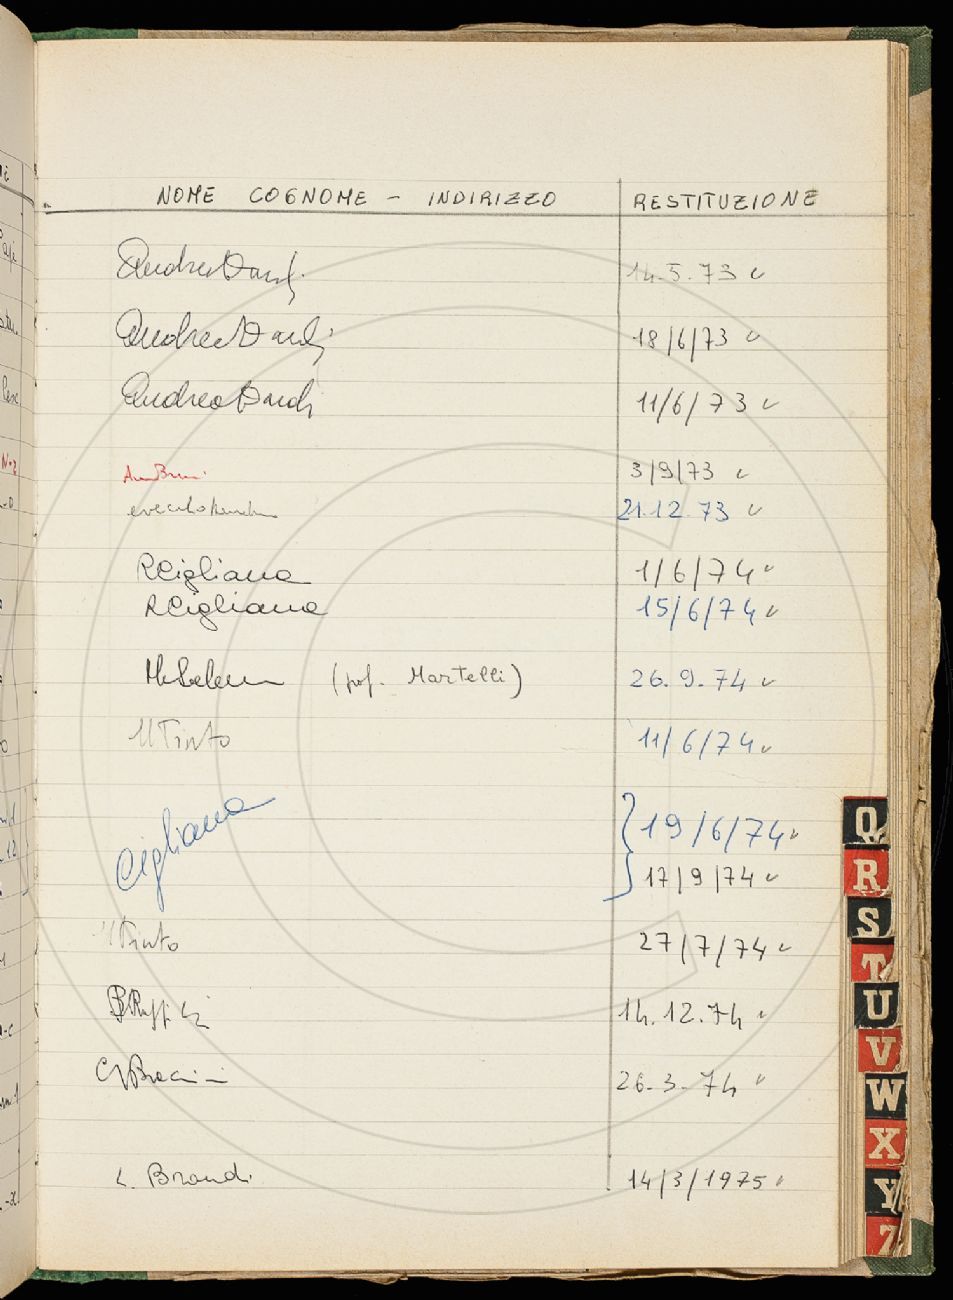 NOME COGNOME - INDIRIZZO RESTITUZIONE
Andrea Dardi 14.5.73
Andrea Dardi 18/6/73
Andrea Dardi 11/6/73
3/9/73
21.12.73
RCigliana 1/6/74
RCigliana 15/6/74
(prof. Martelli) 26.9.74
M Tinto 11/6/74
Cigliana } 19/6/74
17/9/74
M Tinto 27/7/74
14.12.74
26.3.74
L. Brandi 14/3/1975
Q
R
S
T
U
V
W
X
Y
Z